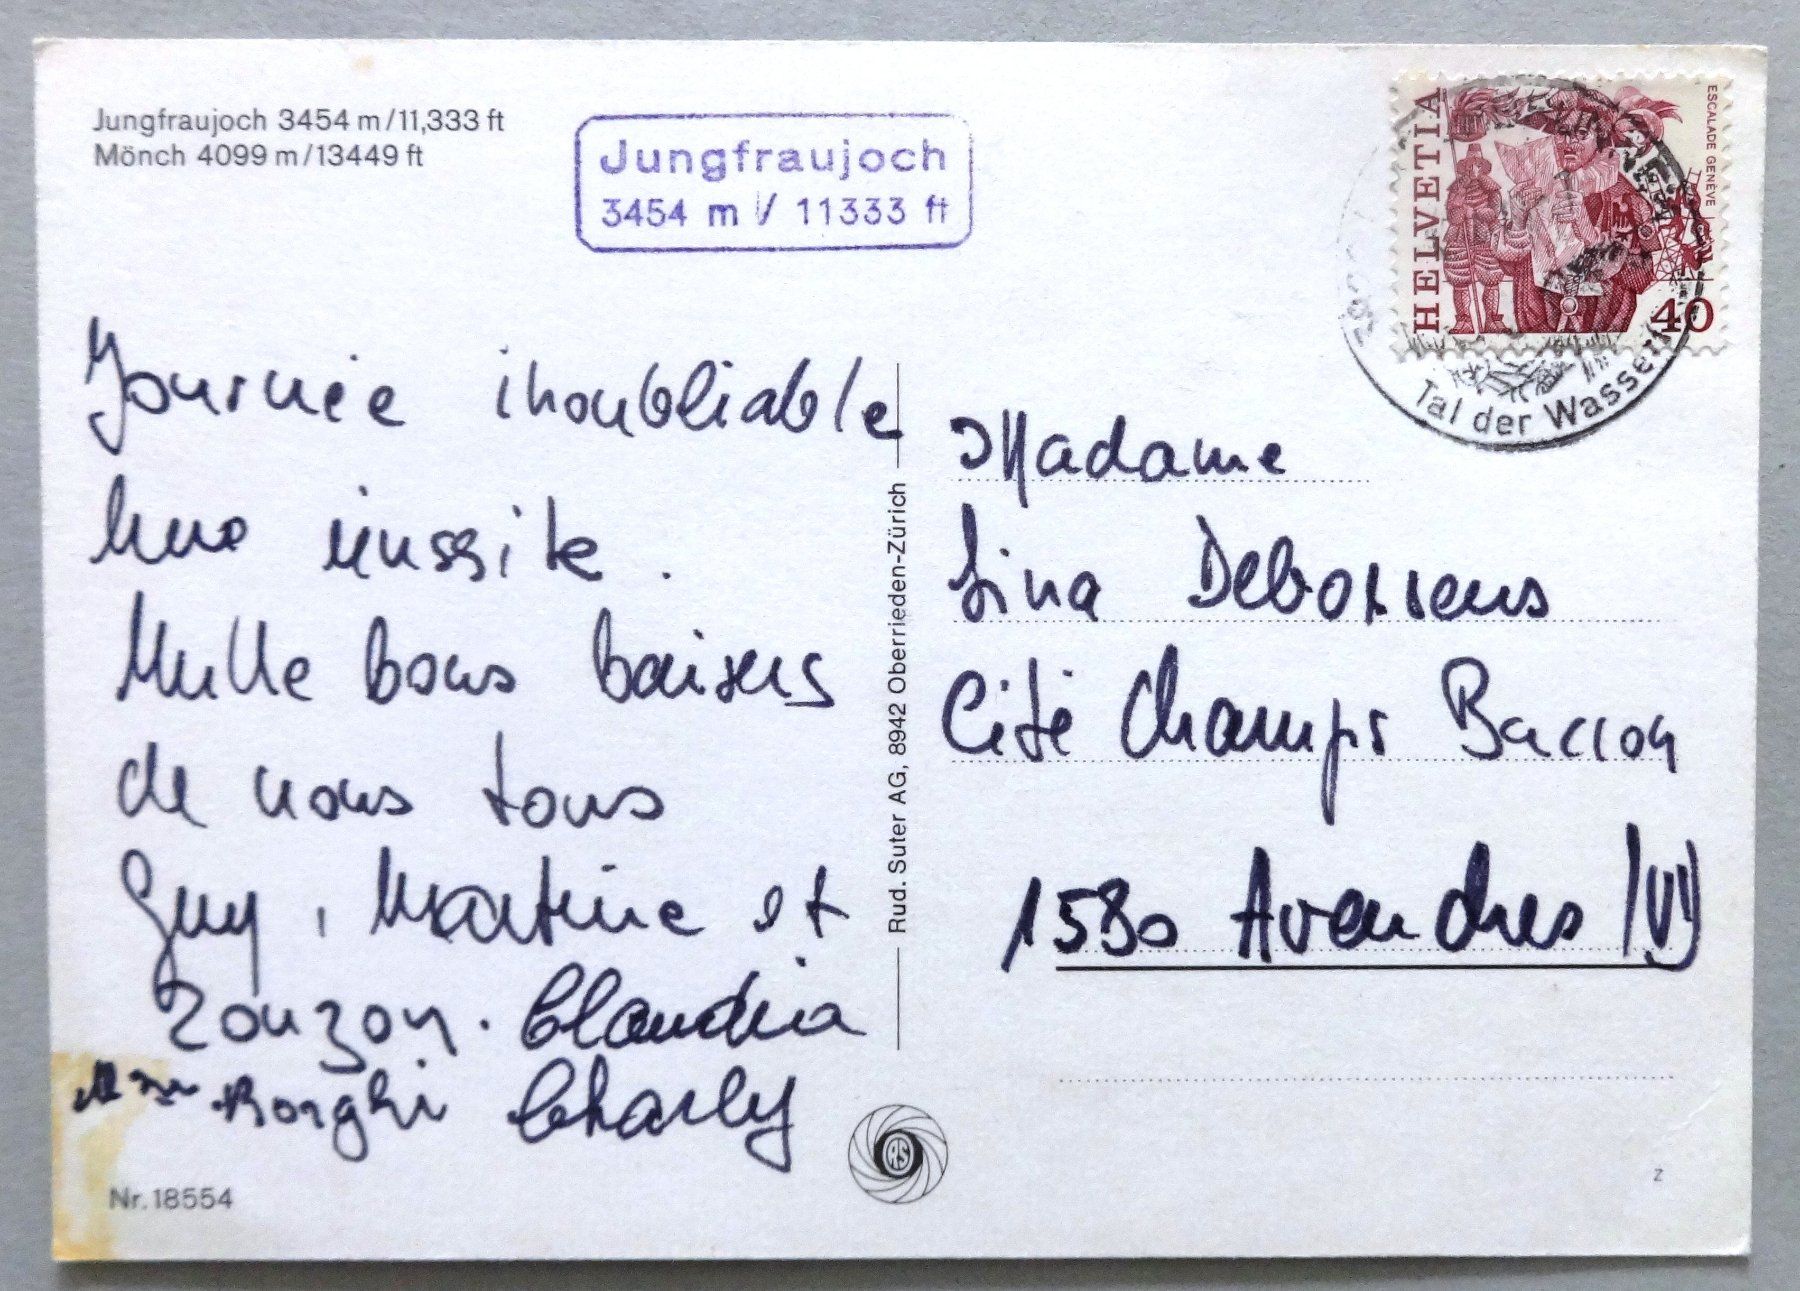 Jungfraujoch 3454 m/11,333 ft
Mönch 4099 m/13449 ft
Jungfraujoch
3454 m / 11333 ft
HELVETIA
ESCALADE GENÈVE
40
Tal der Wasser
Journée inoubliable
Une réussite.
Mille bons baisers
de nous tous
Guy, Martine et
Zouzou. Claudia
Mme Borghi Charly
Rud. Suter AG, 8942 Oberrieden-Zürich
Madame
Lina
Cité Champs Baccon
1580 Avenches /VD
RS
Nr. 18554
2